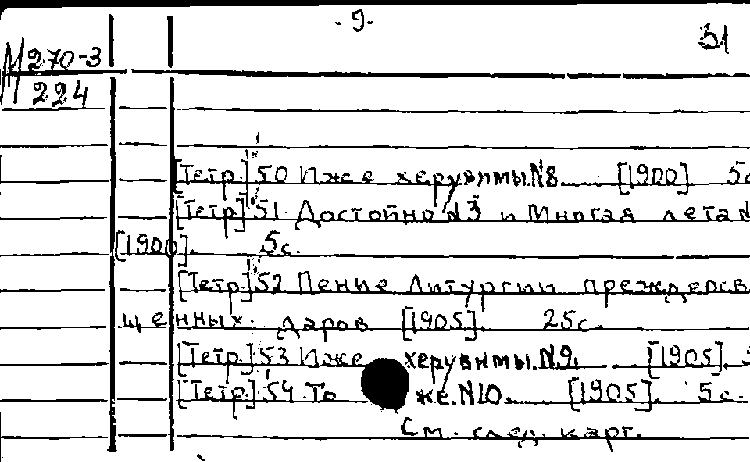 - 9-
31
М 270-3
224
[Тетр.] 50 Иже херувимы N8. [1900] 5с
[Тетр.] 51 Достойно N3 и Многая лета N
[1900]. 5с.
[Тетр.] 52 Пение Литургии преждеосв
щенных даров [1905]. 25с.
[Тетр.] 53 Иже херувимы N9. [1905].
[Тетр.] 54 То же. N10. [1905]. 5с.
См. след. карт.